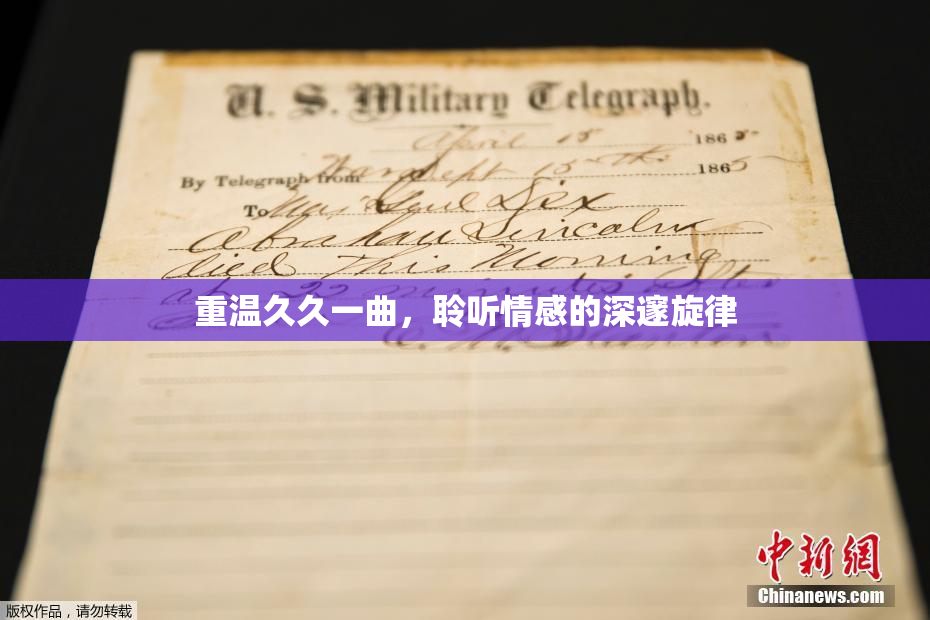 U. S. Military Telegraph.
April 15 1865
By Telegraph from War Dept 15th 1865
To Maj Genl Dix
Abraham Lincoln
died This Morning
at 22 minutes after
重温久久一曲，聆听情感的深邃旋律
E. M. Stanton
中新網
Chinanews.com
版权作品，请勿转载